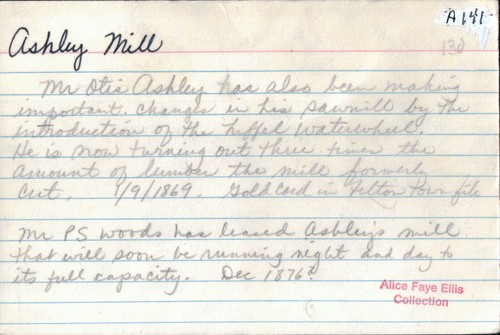 A141
Ashley Mill
130
Mr Otis Ashley has also been making
important changes in his sawmill by the
introduction of the Leffel Waterwheel.
He is now turning out three times the
amount of lumber the mill formerly
cut. 1/9/1869. Gold Card in Felton Town file
Mr P.S. Woods has leased Ashley's mill
that will soon be running night and day to
its full capacity. Dec 1876?
Alice Faye Ellis
Collection